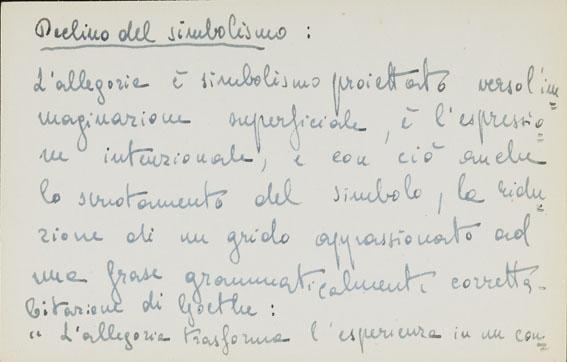 Declino del simbolismo :
L'allegoria è simbolismo proiettato verso l'im=
maginazione superficiale, è l'espressio=
ne intenzionale, e con ciò anche
lo svuotamento del simbolo, la ridu=
zione di un grido appassionato ad
una frase grammaticalmente corretta.
Citazione di Goethe :
" L'allegoria trasforma l'esperienza in un con=